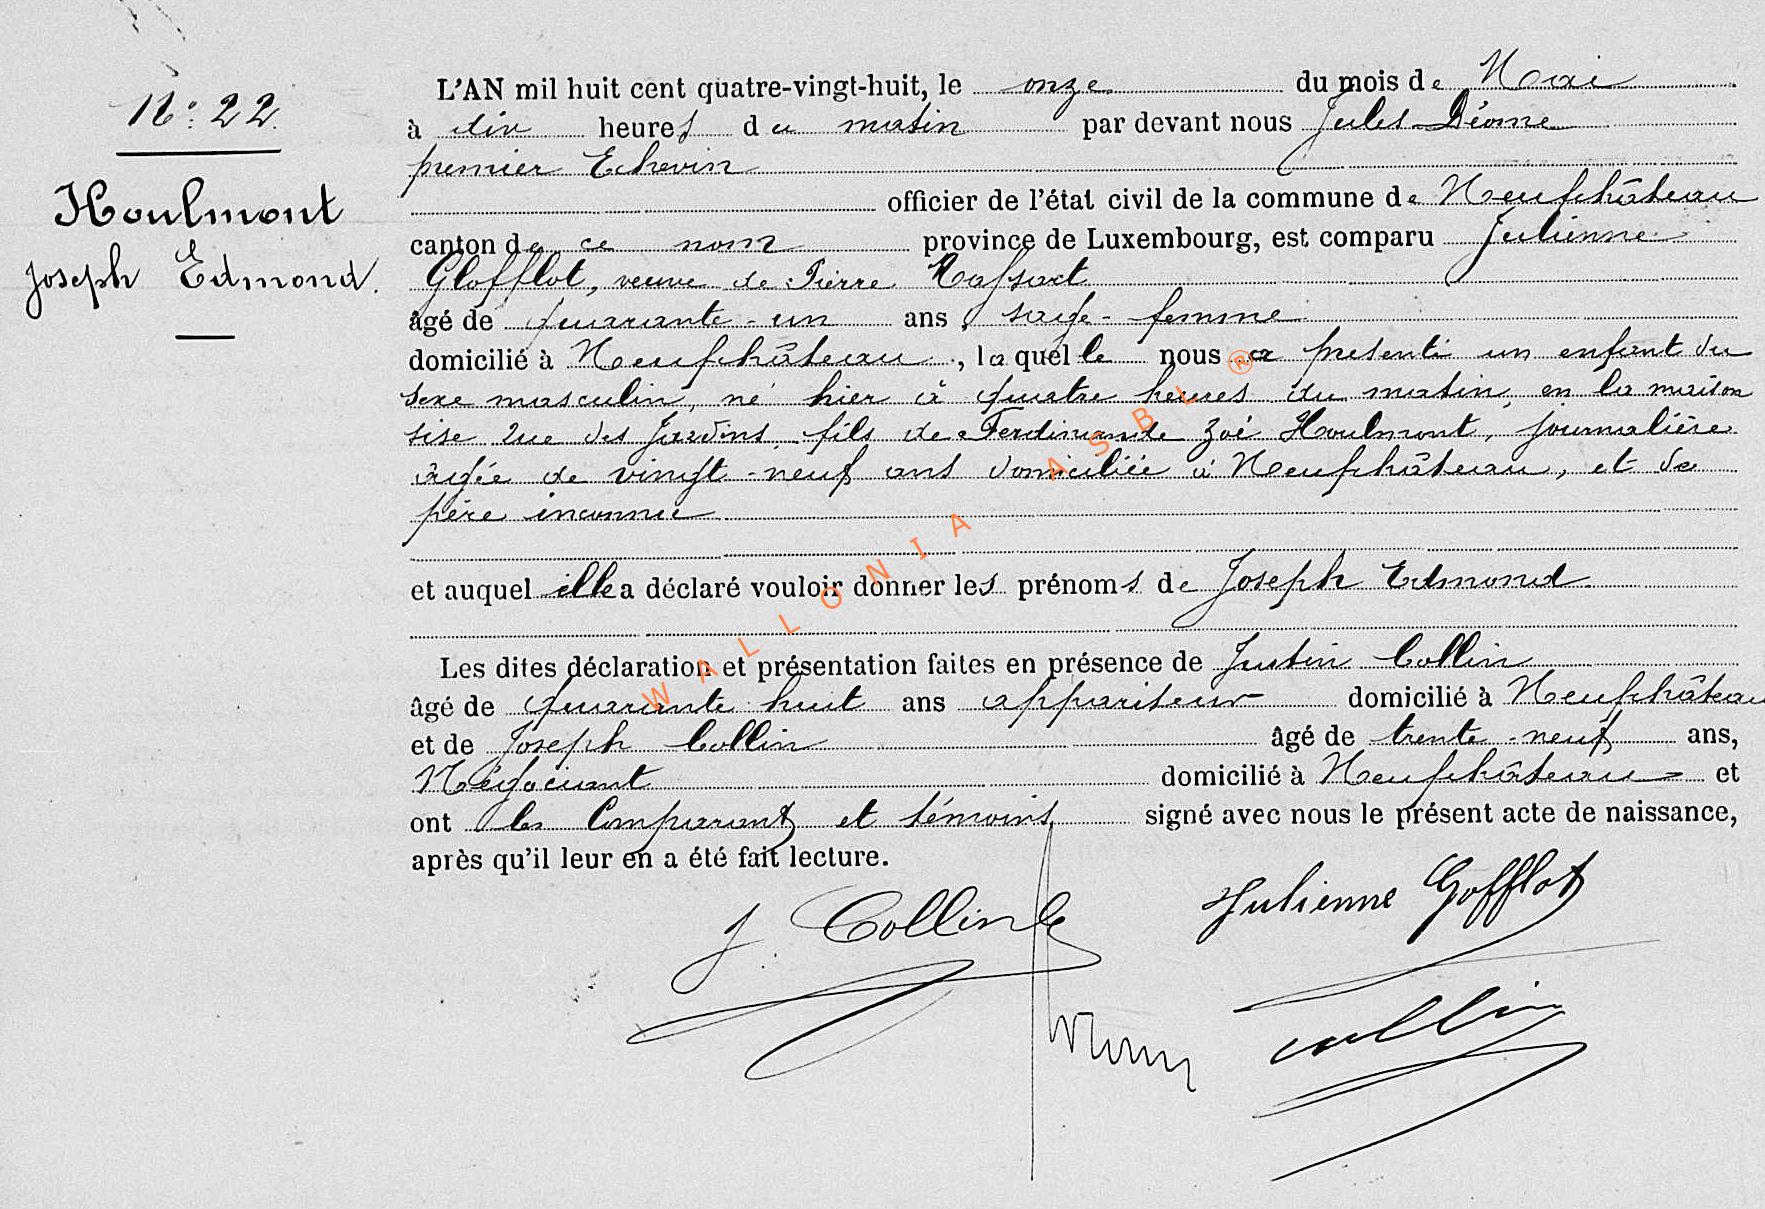 N°: 22
Houlmont
Joseph Edmond.
L'AN mil huit cent quatre-vingt-huit, le onze du mois de Mai
à dix heures du matin par devant nous Jules Déome
premier Echevin
officier de l'état civil de la commune de Neufchâteau
canton de ce nom province de Luxembourg, est comparu Julienne
Glofflot, veuve de Pierre Massart
âgé de quarante-un ans, sage-femme
domicilié à Neufchâteau, laquelle nous a présenté un enfant du
sexe masculin, né hier à quatre heures du matin, en la maison
sise Rue des Jardins, fils de Ferdinande Zoé Houlmont, journalière
âgée de vingt-neuf ans domiciliée à Neufchâteau, et de
père inconnu
et auquel elle a déclaré vouloir donner les prénoms de Joseph Edmond
Les dites déclaration et présentation faites en présence de Justin Collin
âgé de quarante huit ans appariteur domicilié à Neufchâteau
et de Joseph Collin âgé de trente-neuf ans,
Négociant domicilié à Neufchâteau et
ont les Comparant et témoins signé avec nous le présent acte de naissance,
après qu'il leur en a été fait lecture.
J. Collin
Julienne Gofflot
Collin
WALLONIA ASBL ®